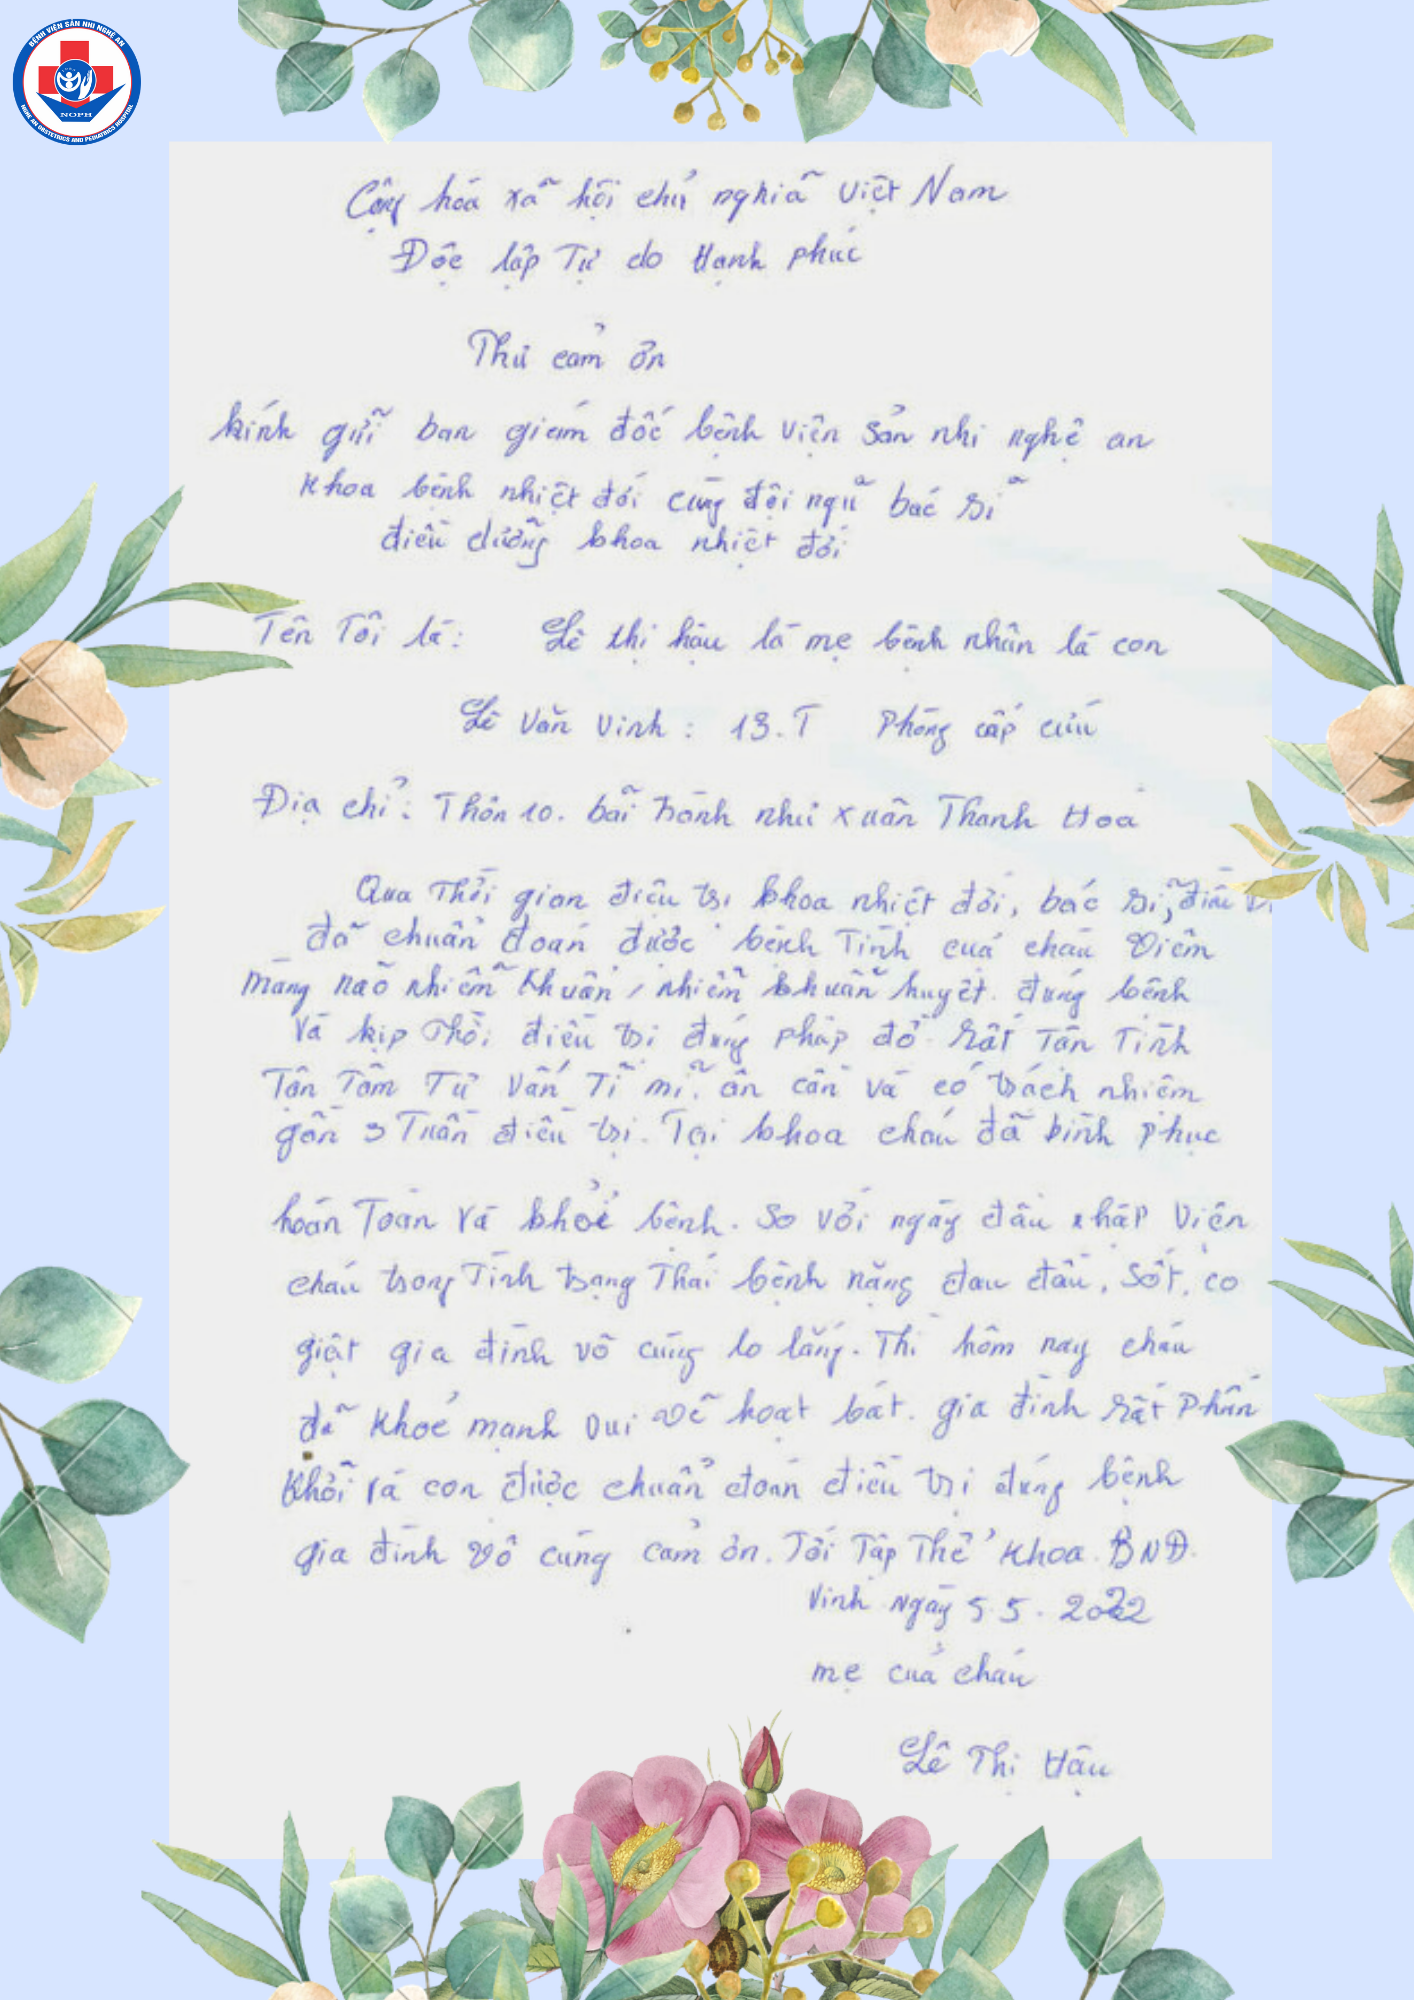 BỆNH VIỆN SẢN NHI NGHỆ AN
NOPH
NGHE AN OBSTETRICS AND PEDIATRICS HOSPITAL
Cộng hóa xã hội chủ nghĩa Việt Nam
Độc lập Tự do Hạnh phúc
Thư cảm ơn
kính gửi ban giám đốc bệnh viện sản nhi nghệ an
khoa bệnh nhiệt đới cùng đội ngũ bác sĩ
điều dưỡng khoa nhiệt đới
Tên Tôi là: Lê thị hậu là mẹ bệnh nhân là con
Lê Văn Vinh: 13.T Phòng cấp cứu
Địa chỉ: Thôn 10. bãi trành như xuân Thanh Hoá
Qua Thời gian điều trị khoa nhiệt đới, bác sĩ, điều
đã chuẩn đoán được bệnh Tình của cháu Viêm
màng não nhiễm khuẩn, nhiễm khuẩn huyết. đúng bệnh
và kịp thời điều trị đúng pháp đồ. rất Tận Tình
Tận Tâm Tư vấn Tỉ mỉ. ân cần và có trách nhiệm
gần 3 Tuần điều trị. Tại khoa cháu đã bình phục
hoàn Toàn và khỏi bệnh. So với ngày đầu nhập viện
cháu trong Tình trạng Thái bệnh nặng đau đầu, sốt, co
giật gia đình vô cùng lo lắng. Thì hôm nay cháu
đã khoẻ mạnh vui vẽ hoạt bát. gia đình rất Phấn
khởi và con được chuẩn đoán điều trị đúng bệnh
gia đình vô cùng cảm ơn. Tới Tập Thể khoa BNĐ.
Vinh ngày 5.5.2022
mẹ của cháu
Lê Thị Hậu